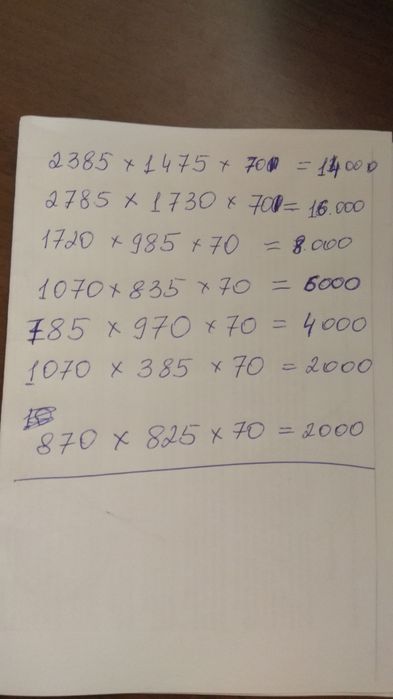 2385 × 1475 × 70 = 14000
2785 × 1730 × 70 = 16.000
1720 × 985 × 70 = 8.000
1070 × 835 × 70 = 6000
785 × 970 × 70 = 4000
1070 × 385 × 70 = 2000
870 × 825 × 70 = 2000